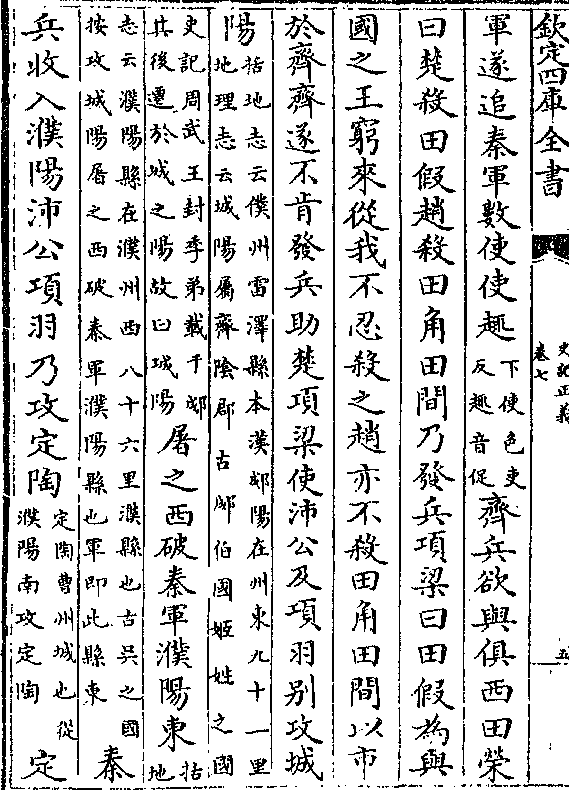 欽定四庫全書
史記正義
卷七
五
軍遂追秦軍數使使趣
下使色吏
反趣音促
齊兵欲與俱西田榮
曰楚殺田假趙殺田角田間乃發兵項梁曰田假為與
國之王窮來從我不忍殺之趙亦不殺田角田間以市
於齊齊遂不肯發兵助楚項梁使沛公及項羽别攻城
陽
括地志云僕州雷澤縣本漢郕陽在州東九十一里
地理志云城陽屬齊隂郡古郕伯國姬姓之國
史記周武王封季弟載于郕
其後遷於城之陽故曰城陽
屠之西破秦軍濮陽東
括
地
志云濮陽縣在濮州西八十六里濮縣也古吳之國
按攻城陽屠之西破秦軍濮陽縣也軍即此縣東
秦
兵收入濮陽沛公項羽乃攻定陶
定陶曹州城也從
濮陽南攻定陶
定